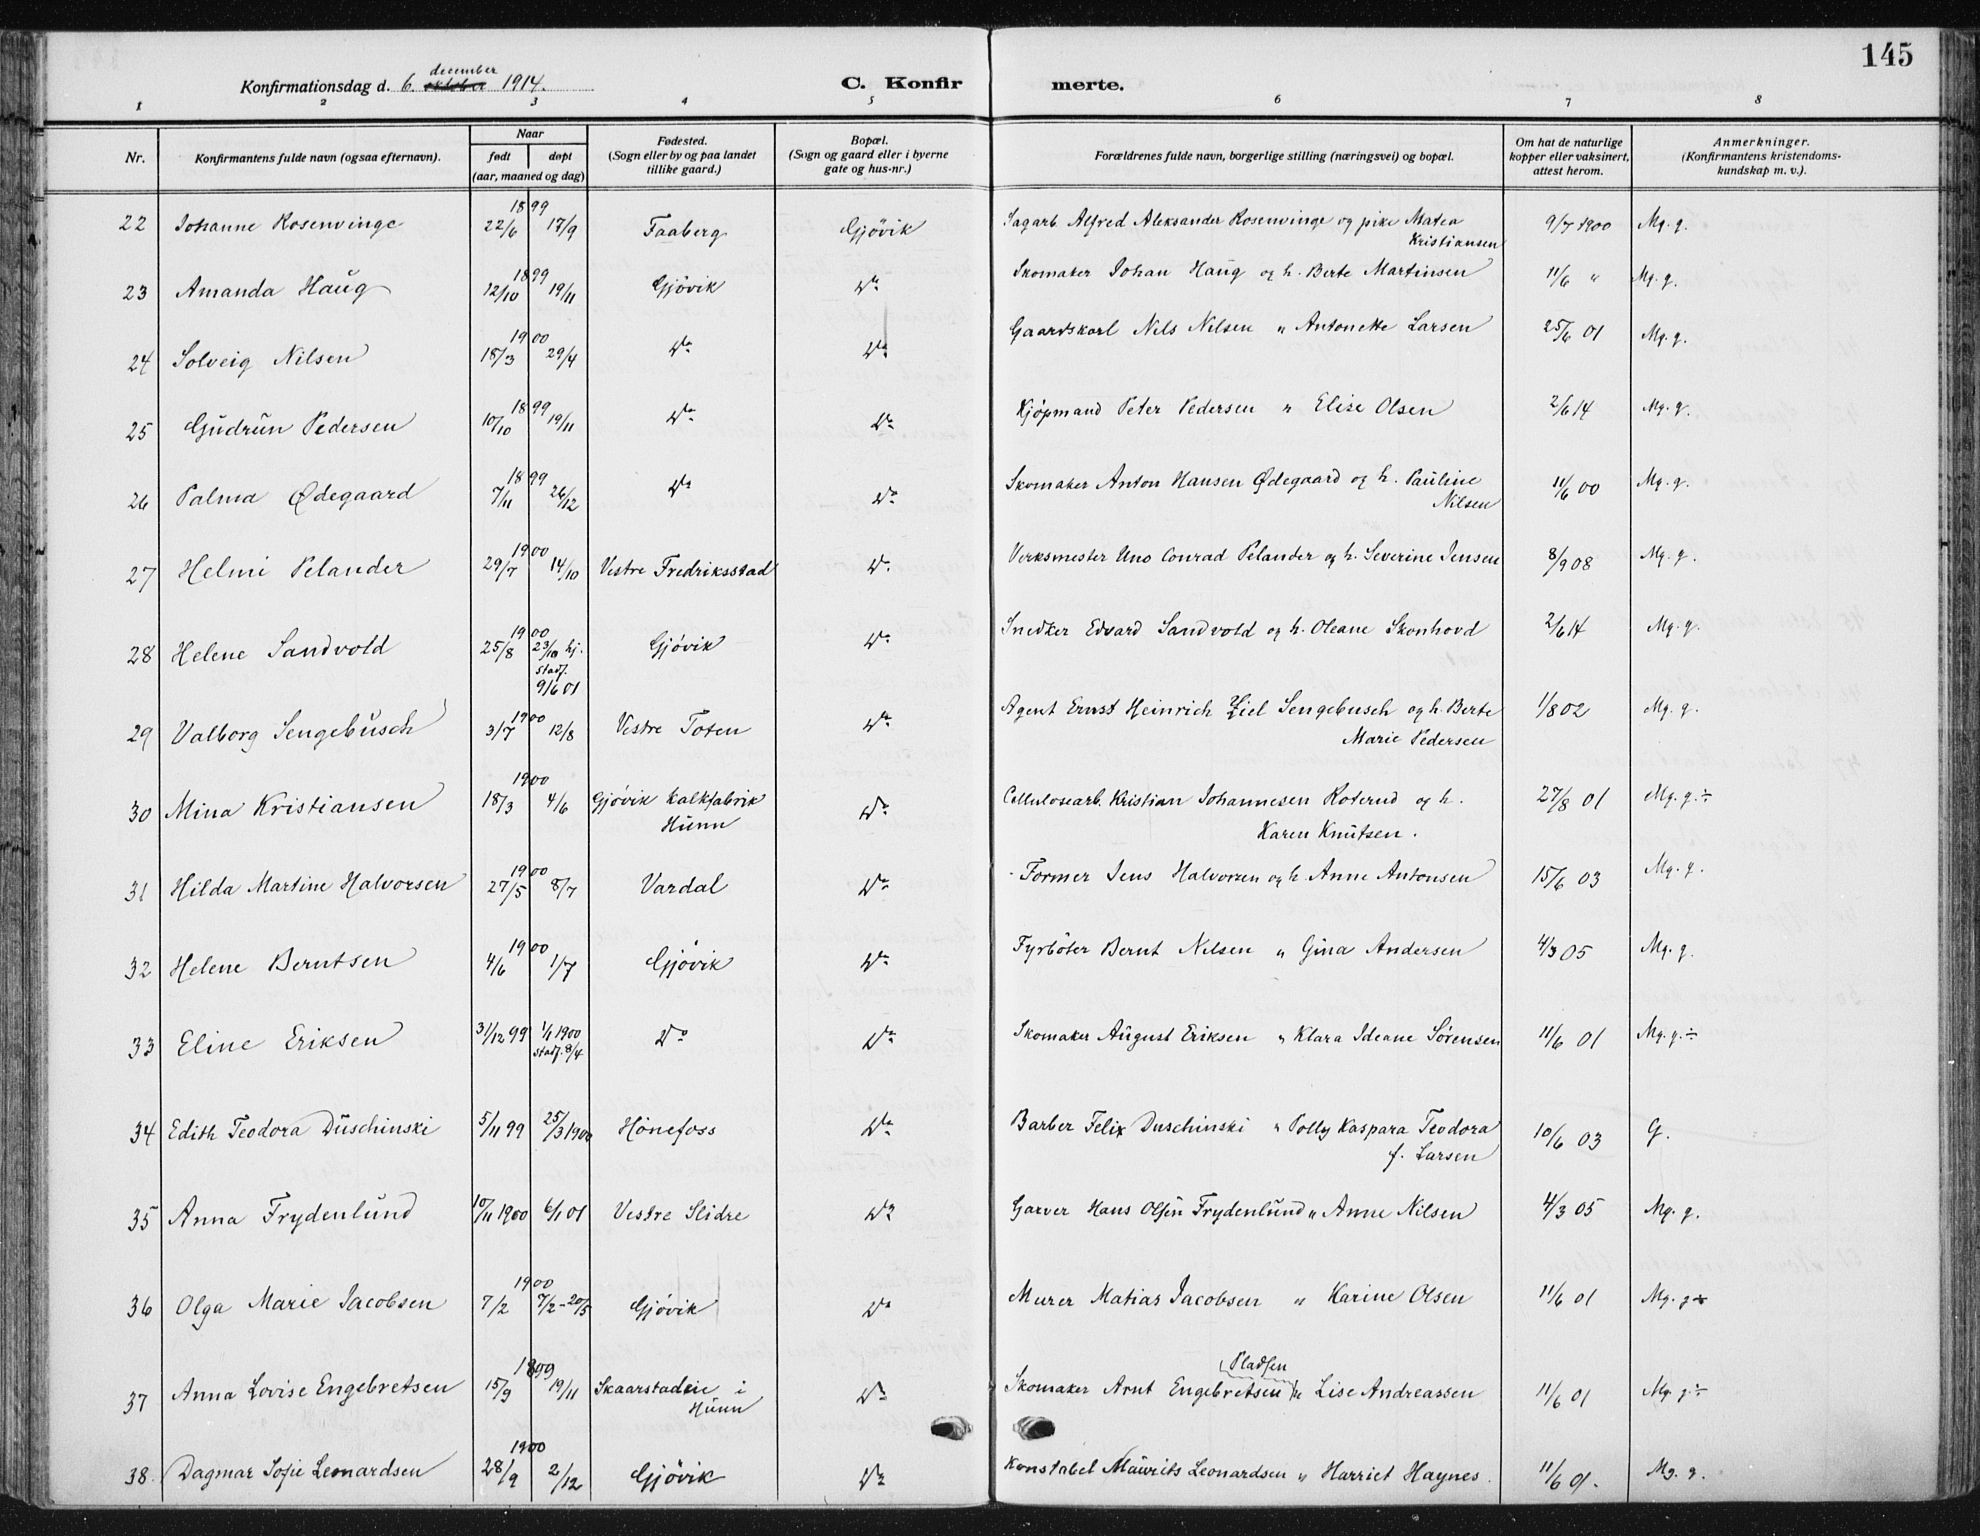 145
Konfirmationsdag d. 6. oktober december 1914.
C. Konfirmerte.
1 2 3 4 5 6 7 8
Nr. Konfirmantens fulde navn (ogsaa efternavn). Naar født døpt (aar, maaned og dag) Fødested. (Sogn eller by og paa landet tillike gaard.) Bopæl. (Sogn og gaard eller i byerne gate og hus-nr.) Forældrenes fulde navn, borgerlige stilling (næringsvei) og bopæl. Om hat de naturlige kopper eller vaksinert, attest herom. Anmerkninger. (Konfirmantens kristendoms-kundskap m. v.).
22 Johanne Rosenvinge 1899 22/6 17/9 Faaberg Gjövik Sagarb. Alfred Aleksander Rosenvinge og pike Matea Kristiansen 9/7 1900 Mg. g.
23 Amanda Haug 1899 12/10 19/11 Gjövik Do Skomaker Johan Haug og h. Berte Martinsen 11/6 " Mg. g.
24 Solveig Nilsen 1900 18/3 29/4 Do Do Gaardskarl Nils Nilsen " Antonette Larsen 25/6 01 Mg. g.
25 Gudrun Pedersen 1899 10/10 19/11 Do Do Kjöpmand Peter Pedersen " Elise Olsen 2/6 14 Mg. g.
26 Palma Ødegaard 1899 7/11 26/12 Do Do Skomaker Anton Hansen Ødegaard og h. Pauline Nilsen 11/6 00 Mg. g.
27 Helmi Pelander 1900 29/7 14/10 Vestre Fredriksstad Do Verksmester Uno Conrad Pelander og h. Severine Jensen 8/9 08 Mg. g.
28 Helene Sandvold 1900 25/8 23/10 hj. stadf. 9/6 01 Gjövik Do Snedker Edvard Sandvold og h. Oleane Skonhovd 2/6 14 Mg. g.
29 Valborg Sengebusch 1900 3/7 12/8 Vestre Toten Do Agent Ernst Heinrich Ziel Sengebusch og h. Berte Marie Pedersen 1/8 02 Mg. g.
30 Mina Kristiansen 1900 18/3 4/6 Gjövik Kalkfabrik Hunn Do Cellulosearb. Kristian Johannesen Roterud og h. Karen Knutsen. 27/8 01 Mg. g. ÷
31 Hilda Martine Halvorsen 1900 27/5 8/7 Vardal Do Former Jens Halvorsen og h. Anne Antonsen 15/6 03 Mg. g.
32 Helene Berntsen 1900 4/6 1/7 Gjövik Do Fyrböter Bernt Nilsen " Gina Andersen 4/3 05 Mg. g.
33 Eline Eriksen 31/12 99 1/1 1900 stadf. 8/4 Do Do Skomaker August Eriksen " Klara Ideane Sörensen 11/6 01 Mg. g. ÷
34 Edith Teodora Duschinski 5/11 99 25/3 1900 Hönefoss Do Barber Felix Duschinski " Polly Kaspara Teodora f. Larsen 10/6 03 G.
35 Anna Frydenlund 10/11 1900 6/1 01 Vestre Slidre Do Garver Hans Olsen Frydenlund " Anne Nilsen 4/3 05 Mg. g.
36 Olga Marie Jacobsen 1900 7/2 7/2 - 20/5 Gjövik Do Murer Matias Jacobsen " Karine Olsen 11/6 01 Mg. g.
37 Anna Lovise Engebretsen 1899 15/9 19/11 Skaarstadeie i Hunn Do Skomaker Arnt Engebretsen Pladsen " Lise Andreassen 11/6 01 Mg. g ÷
38. Dagmar Sofie Leonardsen 1900 28/9 2/12 Gjövik Do Konstabel Maurits Leonardsen " Harriet Haynes. 11/6 01. Mg. g.